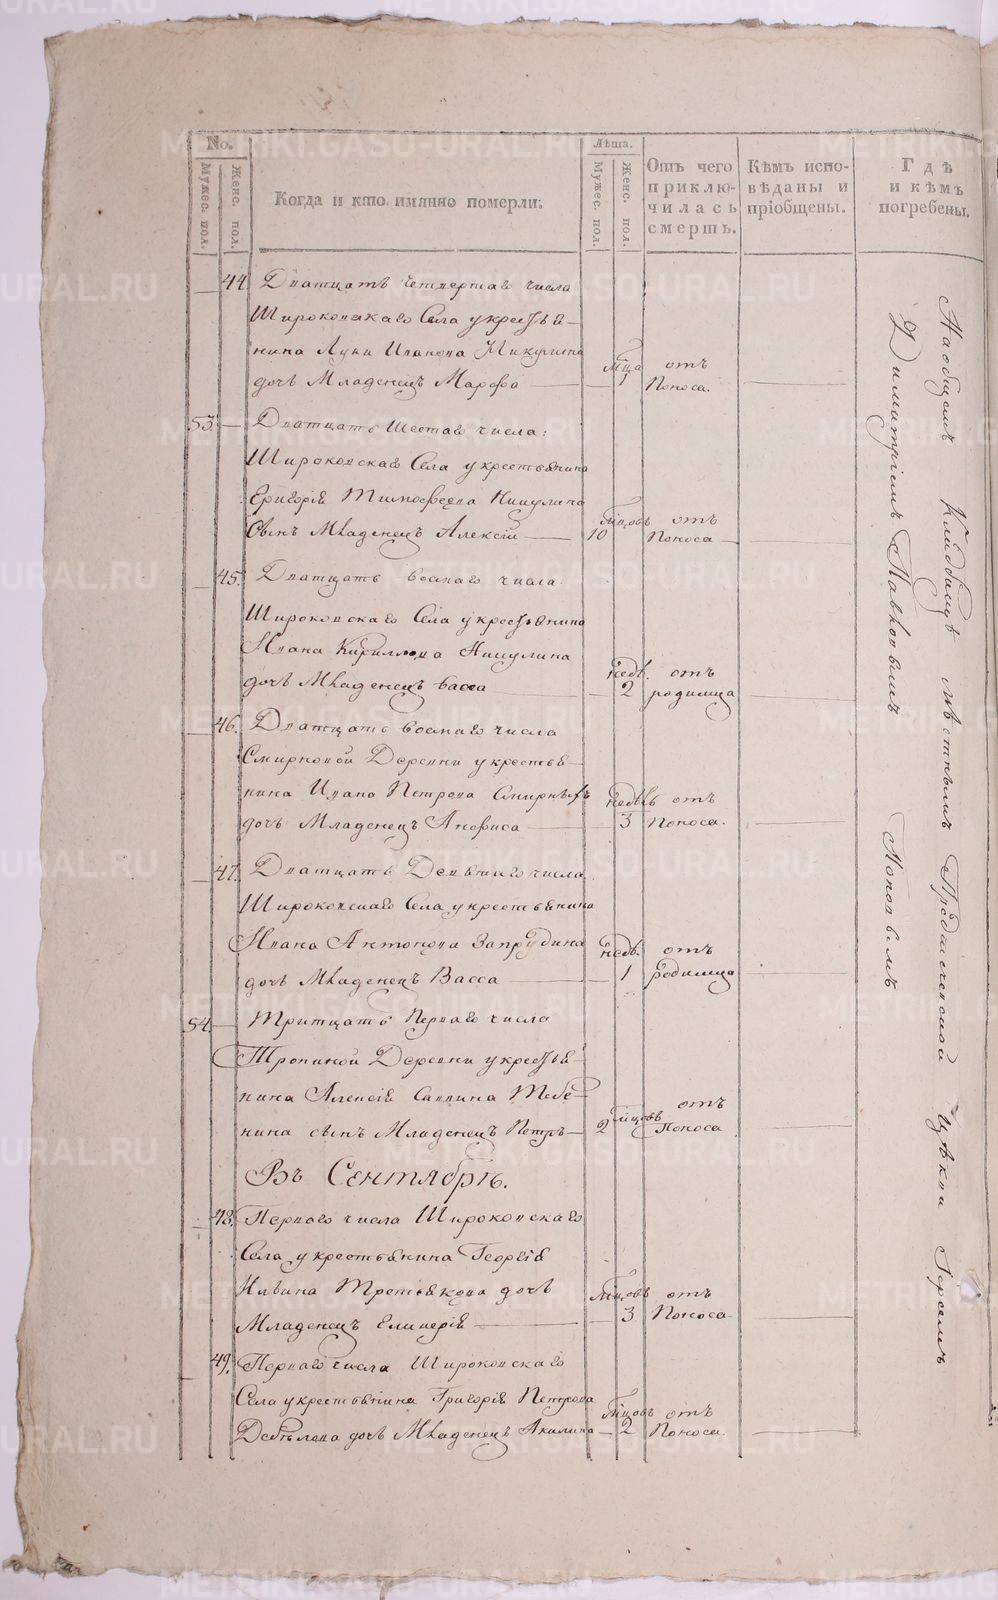 No.
Мужес. пол.
Женс. пол.
Когда и кто имянно померли.
Лѣта.
Мужес. пол.
Женс. пол.
Отъ чего
приклю-
чилась
смерть.
Кѣмъ испо-
вѣданы и
пріобщены.
Гдѣ
и кѣмъ
погребены.
44 Дватцать четвертаго числа
Широковскаго Села у крестья-
нина Луки Иванова Никулина
дочь Младенецъ Марфа — мца 1 отъ Поноса.
53. Дватцать Шестаго числа:
Широковскаго Села у крестьянина
Григорія Тимофеева Никулина
Сынъ Младенецъ Алексій — мцовъ 10 отъ Поноса
45. Дватцать восмаго числа.
Широковскаго Села у крестьянина
Ивана Кириллова Никулина
дочь Младенецъ Васса недѣ. 2 отъ родимца
46. Дватцать восмаго числа
Смирновой Деревни у крестья-
нина Ивана Петрова Смирныхъ
дочь Младенецъ Анфиса — недѣль 3 отъ Поноса.
47. Дватцать Девятаго числа
Широковскаго Села у крестьянина
Ивана Антонова Запрудина
дочь Младенецъ Васса — недѣ. 1 отъ родимца
54 Тритцать Перваго числа
Тропиной Деревни у крестья-
нина Алексія Саввина Тебе-
нина сынъ Младенецъ Петръ — мцовъ 2 отъ Поноса
Въ Сентябрѣ.
48. Перваго числа Широковскаго
Села у крестьянина Георгія
Ильина Третьякова дочь
Младенецъ Гликерія — мцовъ 3 отъ Поноса
49. Перваго числа Широковскаго
Села у крестьянина Григорія Петрова
дочь Младенецъ Акилина — мцовъ 2 отъ Поноса.
На общемъ Кладбищѣ мѣстнымъ Іереемъ
Димитріемъ Поповымъ
METRIKI.GASO-URAL.RU